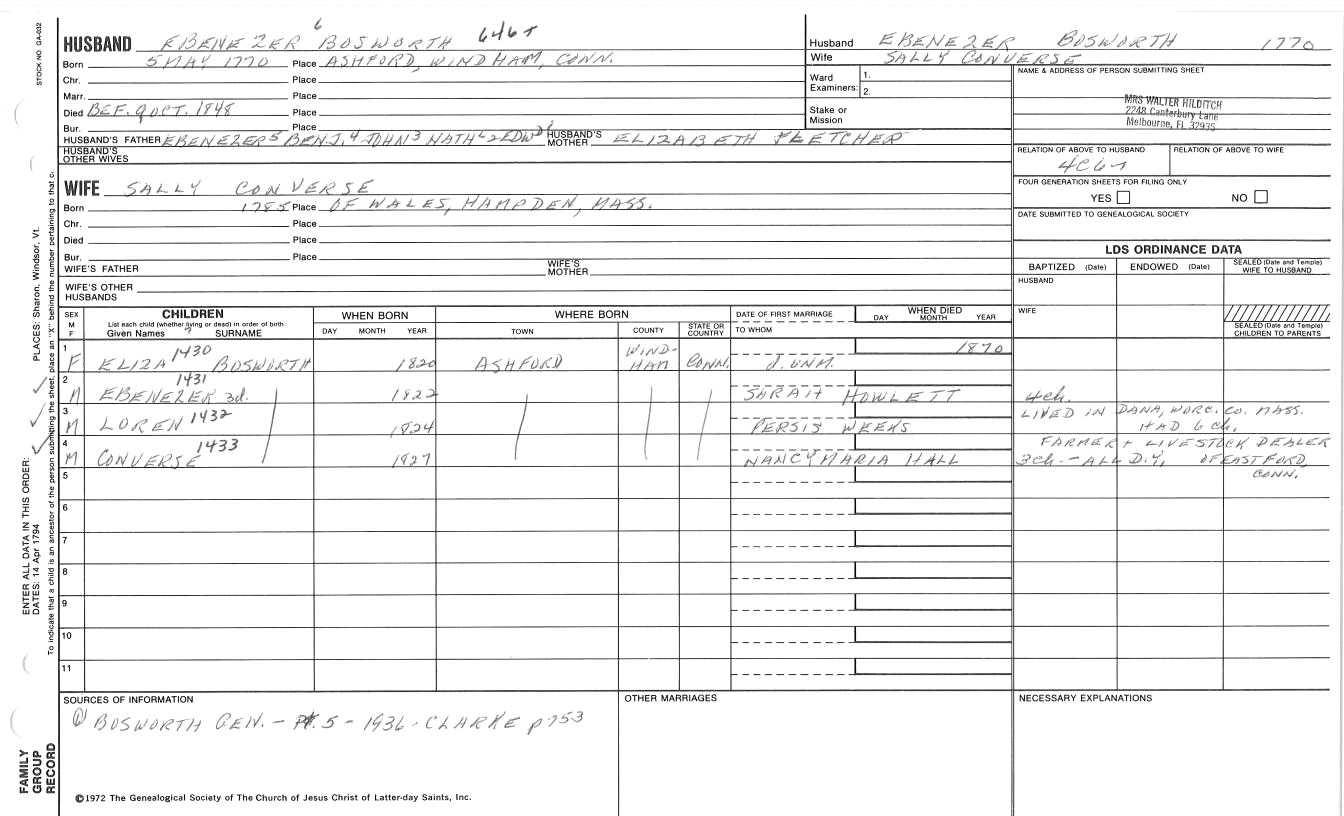 STOCK NO. GA-032
HUSBAND EBENEZER 6 BOSWORTH 646+
Born 5 MAY 1770 Place ASHFORD, WINDHAM, CONN.
Chr. Place
Marr. Place
Died BEF. 9 OCT. 1848 Place
Bur. Place
HUSBAND'S FATHER EBENEZER 5 BENJ. 4 JOHN 3 NATH L 2 EDW D 1 HUSBAND'S MOTHER ELIZABETH FLETCHER
HUSBAND'S OTHER WIVES
Husband EBENEZER BOSWORTH 1770
Wife SALLY CONVERSE
Ward Examiners: 1. 2.
Stake or Mission
NAME & ADDRESS OF PERSON SUBMITTING SHEET
MRS WALTER HILDITCH
2248 Canterbury Lane
Melbourne, FL 32935
RELATION OF ABOVE TO HUSBAND RELATION OF ABOVE TO WIFE
4C6r
FOUR GENERATION SHEETS FOR FILING ONLY
YES NO
DATE SUBMITTED TO GENEALOGICAL SOCIETY
WIFE SALLY CONVERSE
Born 1785 Place OF WALES, HAMPDEN, MASS.
Chr. Place
Died Place
Bur. Place
WIFE'S FATHER WIFE'S MOTHER
WIFE'S OTHER HUSBANDS
LDS ORDINANCE DATA
BAPTIZED (Date) ENDOWED (Date) SEALED (Date and Temple) WIFE TO HUSBAND
HUSBAND
WIFE
SEALED (Date and Temple) CHILDREN TO PARENTS
SEX M F CHILDREN WHEN BORN WHERE BORN DATE OF FIRST MARRIAGE WHEN DIED
List each child (whether living or dead) in order of birth
Given Names ? SURNAME DAY MONTH YEAR TOWN COUNTY STATE OR COUNTRY TO WHOM DAY MONTH YEAR
1 F ELIZA 1430 BOSWORTH 1820 ASHFORD WIND-HAM CONN. d. UNM. 1870
2 M EBENEZER 3d. 1431 1822 SARAH HOWLETT 4 ch.
3 M LOREN 1432 1824 PERSIS WEEKS LIVED IN DANA, WORC. CO. MASS.
HAD 6 CH.
4 M CONVERSE 1433 1827 NANCY MARIA HALL FARMER + LIVESTOCK DEALER
3 ch. - ALL D.Y. OF EASTFORD, CONN.
5
6
7
8
9
10
11
SOURCES OF INFORMATION OTHER MARRIAGES NECESSARY EXPLANATIONS
BOSWORTH GEN. - Pt. 5 - 1936 - CLARKE p 753
©1972 The Genealogical Society of The Church of Jesus Christ of Latter-day Saints, Inc.
FAMILY GROUP RECORD
ENTER ALL DATA IN THIS ORDER:
DATES: 14 Apr 1794
PLACES: Sharon, Windsor, Vt.
To indicate that a child is an ancestor of the person submitting the sheet, place an "X" behind the number pertaining to that c.